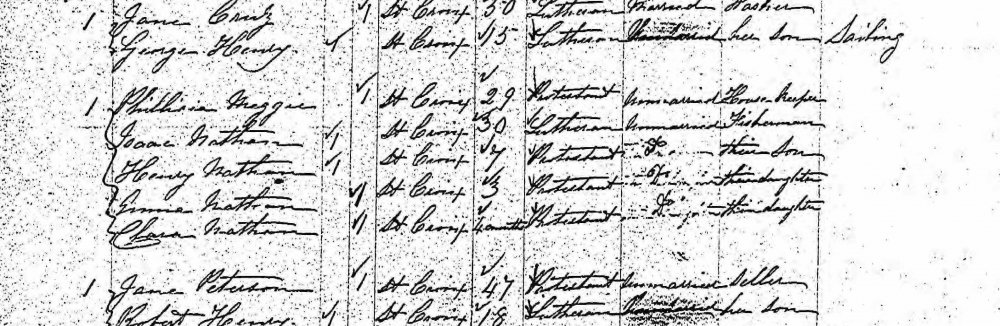 1 Jane Cruz 1 St Croix 30 Lutheran Married Washer
George Henry St Croix 15 Lutheran Unmarried her son Sailing
1 Phillisia Meggie 1 St Croix 29 Protestant Unmarried House keeper
Isaac Nathan 1 St Croix 30 Lutheran Unmarried Fisherman
Henry Nathan 1 St Croix 7 Protestant Do their Son
Emma Nathan 1 St Croix 3 Protestant Do their daughter
Clara Nathan 1 St Croix 4 months Protestant Do their daughter
1 Jane Peterson 1 St Croix 47 Protestant Unmarried Seller
Robert Henry 1 St Croix 18 Lutheran her son